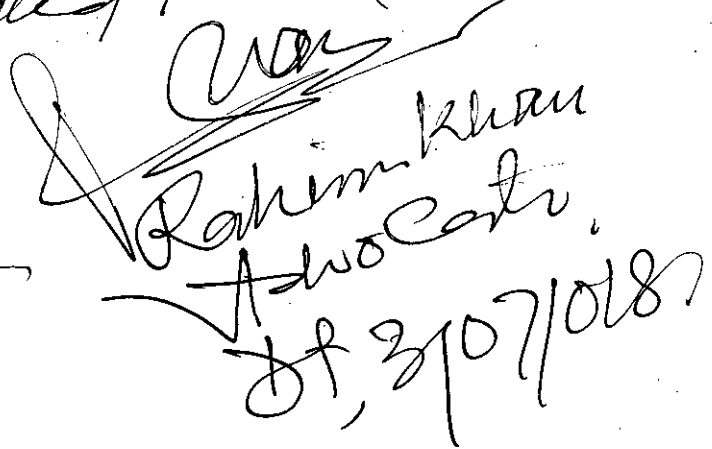 Rahim Khan
Advocate.
Dt, 3/07/018